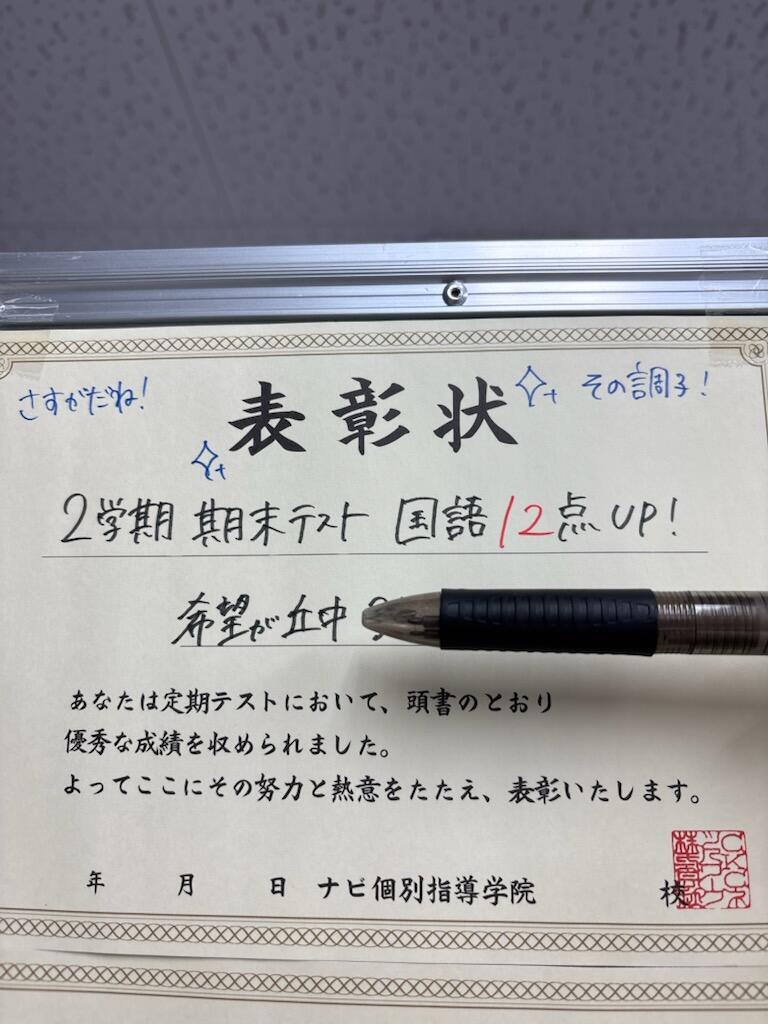 さすがだね!
表彰状
その調子!
2学期 期末テスト 国語 12点UP!
希望が丘中
あなたは定期テストにおいて、頭書のとおり
優秀な成績を収められました。
よってここにその努力と熱意をたたえ、表彰いたします。
年 月 日 ナビ個別指導学院 校